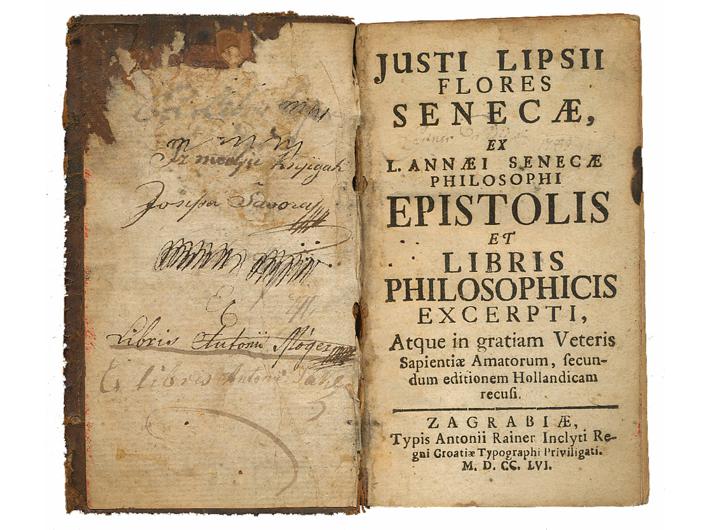 Iz medju knjigah
Josipa
Libris Antonii
Ex libris Antonii
JUSTI LIPSII
FLORES
SENECÆ,
EX
L. ANNÆI SENECÆ
PHILOSOPHI
EPISTOLIS
ET
LIBRIS
PHILOSOPHICIS
EXCERPTI,
Atque in gratiam Veteris
Sapientiæ Amatorum, ſecun-
dum editionem Hollandicam
recuſi.
ZAGRABIÆ,
Typis Antonii Rainer Inclyti Re-
gni Croatiæ Typographi Priviligati.
M. D. CC. LVI.